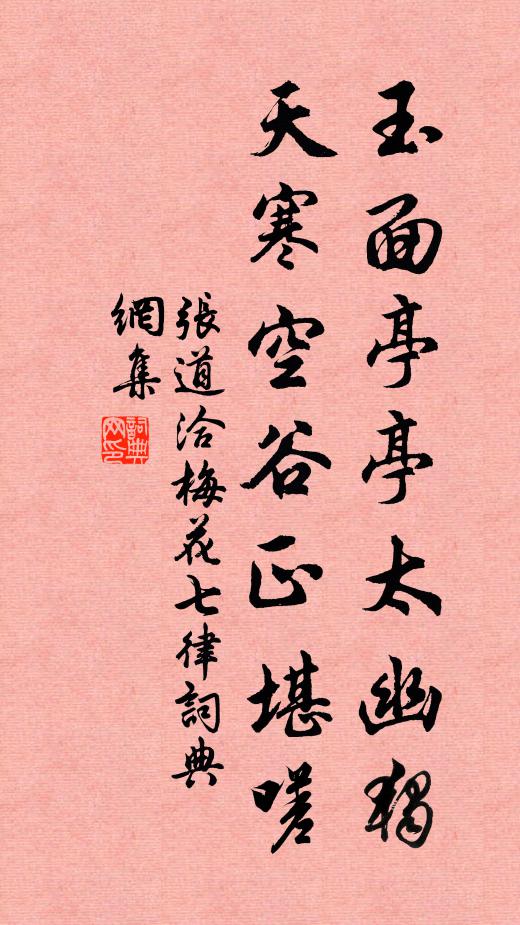 玉面亭亭太幽獨
天寒空谷正堪嗟
張道洽梅花七律詞典
網集
詞典
网印